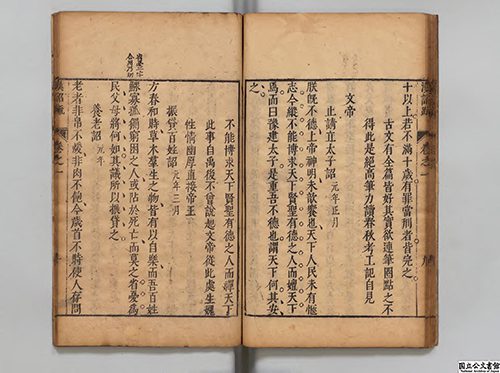 十以上若不滿十歲有罪當刑者皆完之
古文有全篇皆好其實欲連筆圈點之不
得此是絕高筆力讀春秋考工記自見
文帝
止請立太子詔 元年正月
朕旣不德上帝神明未歆饗也天下人民未有愜
志今縱不能博求天下賢聖有德之人而嬗天下
焉而曰豫建太子是重吾不德也謂天下何其安
之
漢詔疏 卷之一
不能博求天下賢聖有德之人而禪天下
此事自禹後不曾說起文帝從此處生
性情幽厚直接帝王
振貸百姓詔 元年三月
方春和時草木羣生之物皆有以自樂而吾百姓
鰥寡孤獨窮困之人或阽於死亡而莫之省憂爲
民父母將何如其議所以振貸之
養老詔 元年
老者非帛不煖非肉不飽今歲首不時使人存問
漢詔疏 卷之一
国立公文書館
National Archives of Japan